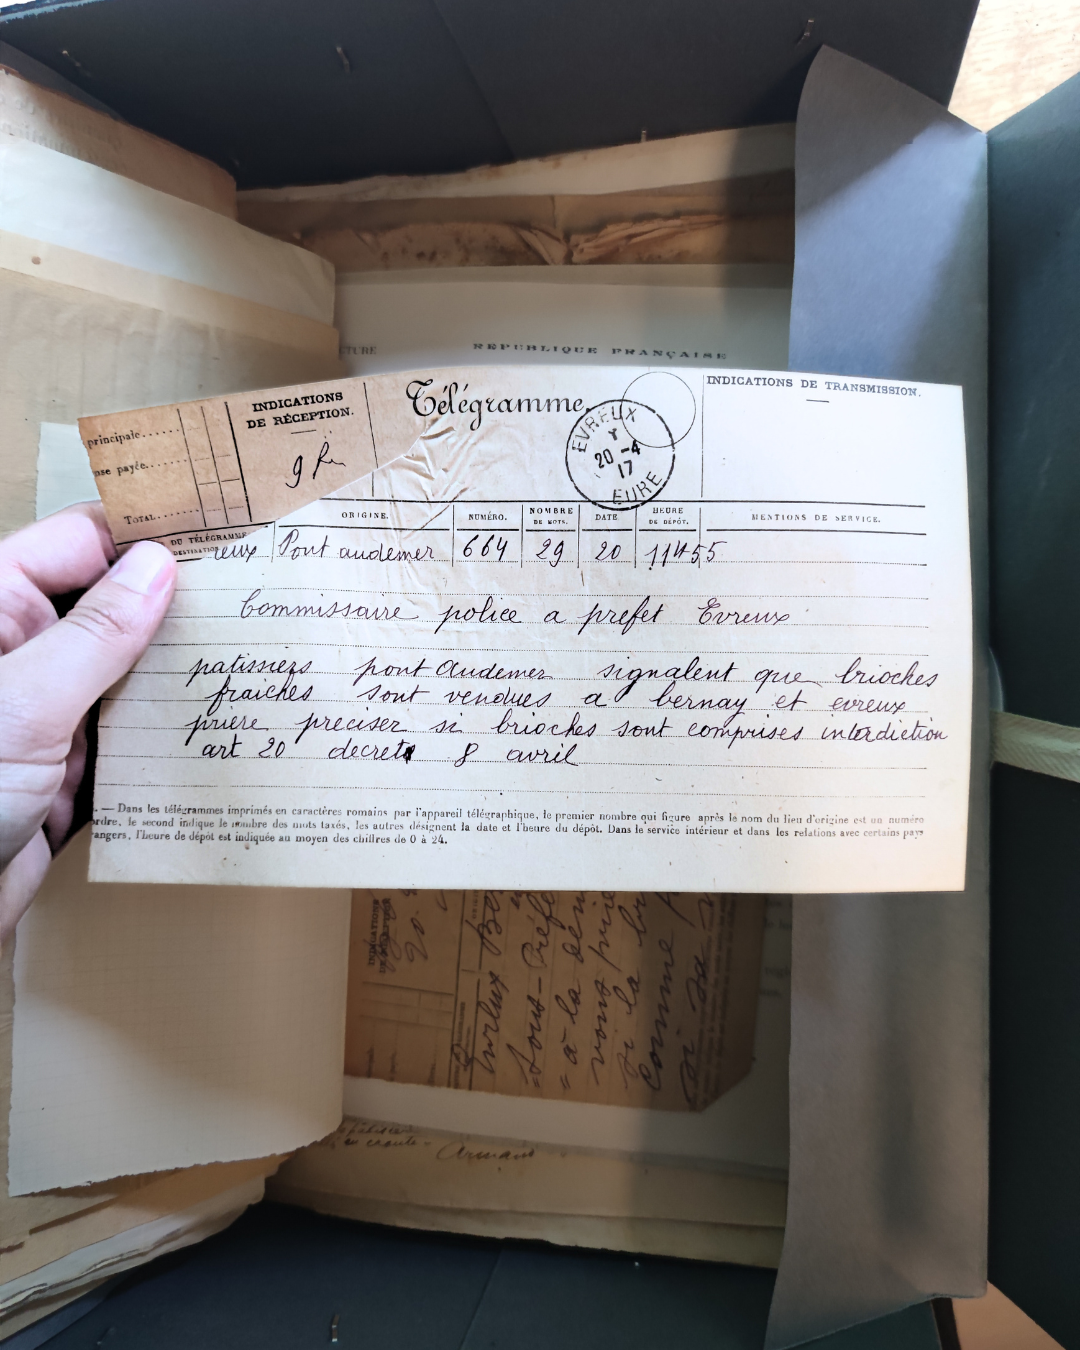 RÉPUBLIQUE FRANÇAISE
principale......
payée......
TOTAL.......
INDICATIONS
DE RÉCEPTION.
Télégramme.
EVREUX
20 -4
17
EURE
INDICATIONS DE TRANSMISSION.
DU TÉLÉGRAMME
DESTINATION
ORIGINE.
NUMÉRO.
NOMBRE
DE MOTS.
DATE
HEURE
DE DÉPÔT.
MENTIONS DE SERVICE.
reux Pont audemer 664 29 20 11H55
Commissaire police a prefet Evreux
patissiers pont Audemer signalent que brioches
fraiches sont vendues a bernay et evreux
priere preciser si brioches sont comprises interdiction
art 20 decret 8 avril
. — Dans les télégrammes imprimés en caractères romains par l'appareil télégraphique, le premier nombre qui figure après le nom du lieu d'origine est un numéro
ordre, le second indique le nombre des mots taxés, les autres désignent la date et l'heure du dépôt. Dans le service intérieur et dans les relations avec certains pays
rangers, l'heure de dépôt est indiquée au moyen des chiffres de 0 à 24.
INDICATIONS
= à la
vous prie
si la
comme